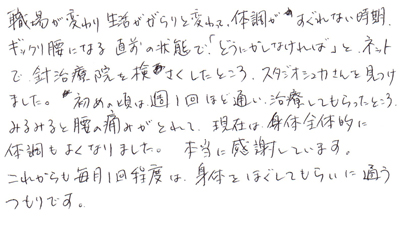 職場が変わり生活ががらりと変わって、体調がすぐれない時期、
ギックリ腰になる直前の状態で「どうにかしなければ」と、ネット
で針治療院を検さくしたところ、スタジオシカさんを見つけ
ました。初めの頃は週1回ほど通い、治療してもらったところ、
みるみると腰の痛みがとれて、現在は身体全体的に
体調もよくなりました。本当に感謝しています。
これからも毎月1回程度は、身体をほぐしてもらいに通う
つもりです。